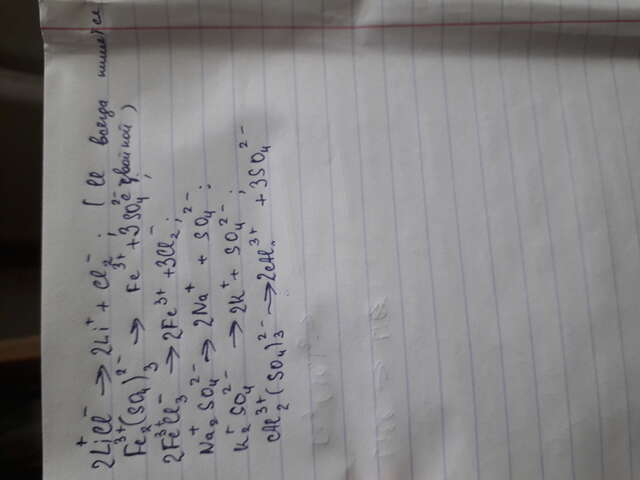 2Li⁺Cl⁻ → 2Li⁺ + Cl₂⁻ ; ( Cl всегда пишется
с двойкой )
Fe₂³⁺(SO₄)₃²⁻ → Fe³⁺ + 3SO₄²⁻ ;
2Fe³⁺Cl₃⁻ → 2Fe³⁺ + 3Cl₂⁻ ;
Na₂⁺SO₄²⁻ → 2Na⁺ + SO₄²⁻ ;
K₂⁺SO₄²⁻ → 2K⁺ + SO₄²⁻ ;
Al₂³⁺(SO₄)₃²⁻ → 2Al³⁺ + 3SO₄²⁻